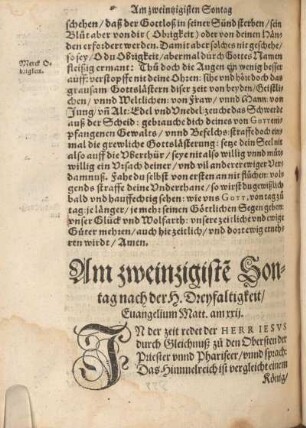 Am zweintzigisten Sontag
schehen / daß der Gottloß in seiner Sünd sterben / sein
Blůt aber von dir (Obrigkeit) oder von deinen Händen
erfordert werden. Damit aber solches nit geschehe /
so sey / O du Obrigkeit / abermal durch Gottes Namen
fleissig ermant: Thů doch die Augen ein wenig besser
auff: verstopffe nit deine Ohren: sihe vnd hört doch das
grausam Gottslästern diser zeit von beyden / Geistlichen /
vnnd Weltlichen: von Fraw / vnnd Mann: von
Jung / vnnd Alt: Edel vnd Vnedel: zeuch das Schwerdt
auß der Scheid: gebrauch dich deines von GOTT
pfangenen Gewalts / vnnd Befelchs: straffe doch einmal
die grewliche Gottslästerung: setze dein Seel nit
also auff die Vberthür / sey nit also willig vnd mütwillig
ein Vrsach deiner / vnd vil anderer ewiger Verdamnuß.
Fahe du selbst von ersten an nit flůchen: volgends
straffe deine Vnderthane / so wirst du gewißlich
bald vnd hauffechtig sehen: wie vns GOTT, von tag zů
tag: je länger / je mehr seinen Göttlichen Segen geben:
vnser Glück vnd Wolfarth: vnsere zeitliche vnd ewige
Güter mehren / auch hie zeitlich / vnd dort ewig ernehren
wirdt / Amen.
Am zweinzigistē Son-
tag nach der H. Dreyfaltigkeit /
Euangelium Matt. am xxij.
IN der zeit redet der HERR IESVS
durch Gleichnuß zů den Obersten der
Priester vnnd Phariseer / vnnd sprach:
Das Himmelreich ist vergleicht einem
König /